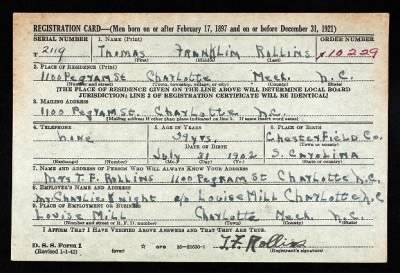 REGISTRATION CARD—(Men born on or after February 17, 1897 and on or before December 31, 1921)
SERIAL NUMBER 1. NAME (Print) ORDER NUMBER
T 2119 Thomas Franklin Rollins 10229
(First) (Middle) (Last)
2. PLACE OF RESIDENCE (Print)
1100 Pegram St Charlotte Meck. N.C.
(Number and street) (Town, township, village, or city) (County) (State)
[THE PLACE OF RESIDENCE GIVEN ON THE LINE ABOVE WILL DETERMINE LOCAL BOARD
JURISDICTION; LINE 2 OF REGISTRATION CERTIFICATE WILL BE IDENTICAL]
3. MAILING ADDRESS
1100 Pegram St. Charlotte N.C.
[Mailing address if other than place indicated on line 2. If same insert word same]
4. TELEPHONE 5. AGE IN YEARS 6. PLACE OF BIRTH
none 39 yrs. Chesterfield Co.
DATE OF BIRTH (Town or county)
July 31 1902 S. Carolina
(Exchange) (Number) (Mo.) (Day) (Yr.) (State or country)
7. NAME AND ADDRESS OF PERSON WHO WILL ALWAYS KNOW YOUR ADDRESS
Mrs T. F. Rollins 1100 Pegram St Charlotte N.C.
8. EMPLOYER'S NAME AND ADDRESS
Mr. Charlie Knight c/o Louise Mill Charlotte N.C
9. PLACE OF EMPLOYMENT OR BUSINESS
Louise Mill Charlotte Meck. N.C.
(Number and street or R. F. D. number) (Town) (County) (State)
I AFFIRM THAT I HAVE VERIFIED ABOVE ANSWERS AND THAT THEY ARE TRUE.
D. S. S. Form 1
(Revised 1-1-42) (over) GPO 16-21630-1 T. F. Rollins